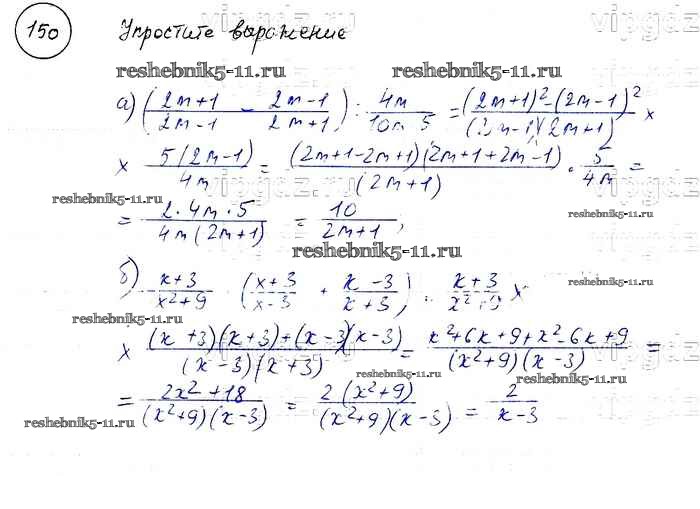 150 Упростите выражение
vipgdz
reshebnik5-11.ru reshebnik5-11.ru
а) ((2m+1)/(2m-1) - (2m-1)/(2m+1)) : 4m/(10m-5) = ((2m+1)²-(2m-1)²)/((2m-1)(2m+1)) ×
× 5(2m-1)/4m = ((2m+1-2m+1)(2m+1+2m-1))/(2m+1) · 5/4m =
reshebnik5-11.ru
vipgdz
= (2·4m·5)/(4m(2m+1)) = 10/(2m+1),
reshebnik5-11.ru
reshebnik5-11.ru
б) (x+3)/(x²+9) · ((x+3)/(x-3) + (x-3)/(x+3)) = (x+3)/(x²+9) ×
reshebnik5-11.ru
× ((x+3)(x+3)+(x-3)(x-3))/((x-3)(x+3)) = (x²+6x+9+x²-6x+9)/((x²+9)(x-3)) =
vipgdz
reshebnik5-11.ru
reshebnik5-11.ru
= (2x²+18)/((x²+9)(x-3)) = 2(x²+9)/((x²+9)(x-3)) = 2/(x-3)
reshebnik5-11.ru
reshebnik5-11.ru